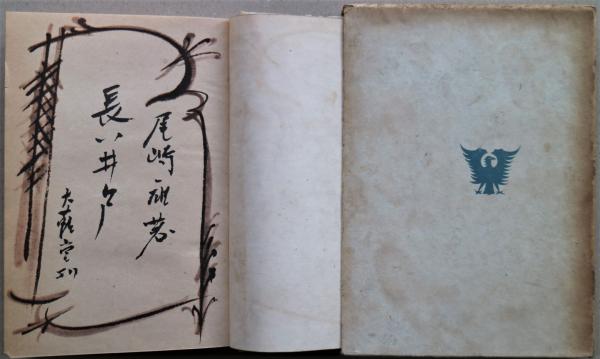 尾崎一雄著
長い井戸
大観堂刊